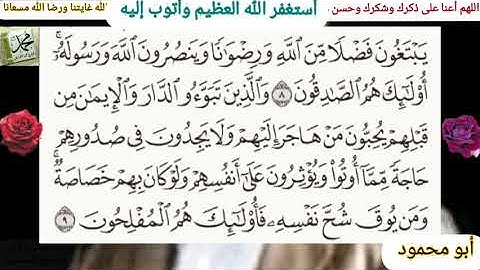 اللهم أعنا على ذكرك وشكرك وحسن
أستغفر الله العظيم وأتوب إليه
لله غايتنا ورضا الله مسعانا
محمد
يَبْتَغُونَ فَضْلًا مِّنَ ٱللَّهِ وَرِضْوَٰنًا وَيَنصُرُونَ ٱللَّهَ وَرَسُولَهُۥٓ ۚ
أُو۟لَٰٓئِكَ هُمُ ٱلصَّٰدِقُونَ ٨ وَٱلَّذِينَ تَبَوَّءُو ٱلدَّارَ وَٱلْإِيمَٰنَ مِن
قَبْلِهِمْ يُحِبُّونَ مَنْ هَاجَرَ إِلَيْهِمْ وَلَا يَجِدُونَ فِى صُدُورِهِمْ
حَاجَةً مِّمَّآ أُوتُوا۟ وَيُؤْثِرُونَ عَلَىٰٓ أَنفُسِهِمْ وَلَوْ كَانَ بِهِمْ خَصَاصَةٌ ۚ
وَمَن يُوقَ شُحَّ نَفْسِهِۦ فَأُو۟لَٰٓئِكَ هُمُ ٱلْمُفْلِحُونَ ٩
أبو محمود